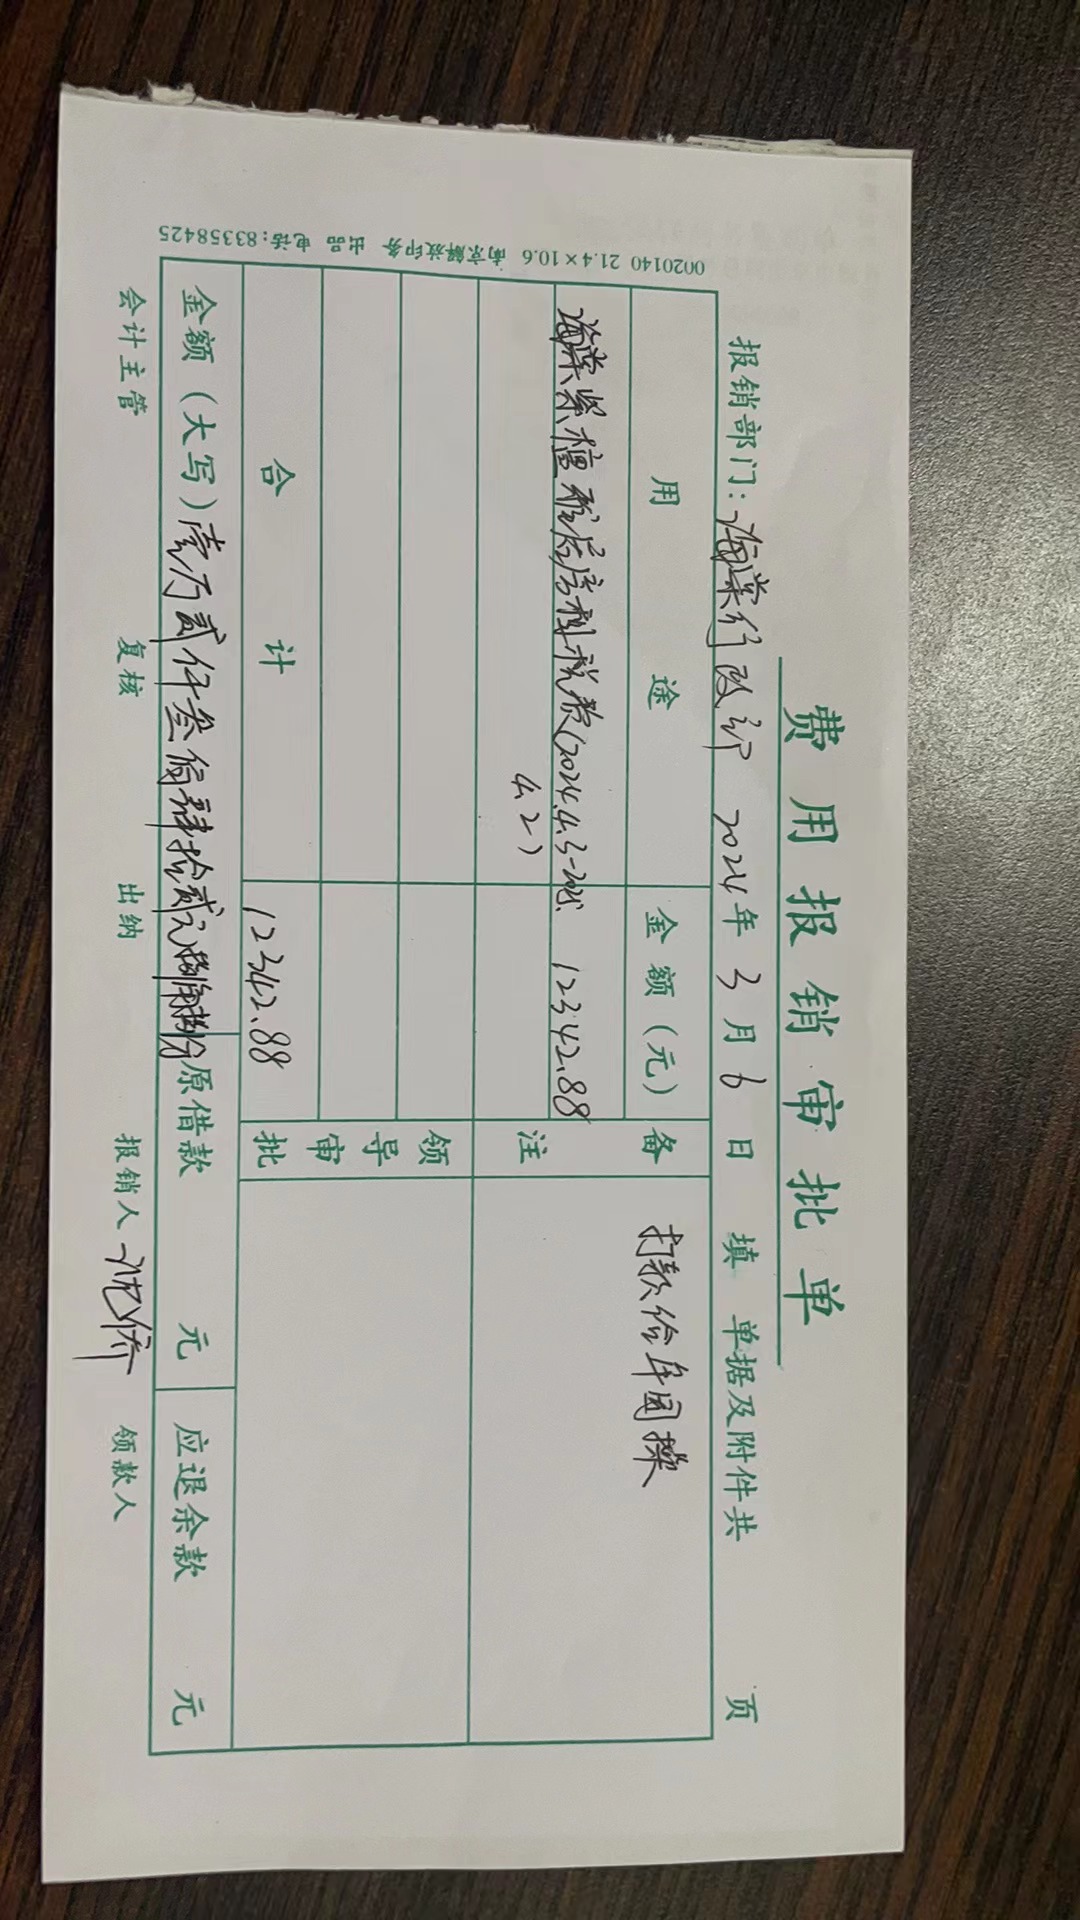 费用报销审批单
报销部门：海棠行政部 2024年3月6日填 单据及附件共 页
用途 金额（元） 备注
海棠紫檀雅居房租税款(2024.4.3-2025. 12342.88
4.2)
打款给年国操
领导审批
合计 12342.88
金额（大写）壹万贰仟叁佰肆拾贰元捌角捌分 原借款 元 应退余款 元
会计主管 复核 出纳 报销人 领款人
0020140 21.4×10.6 南京解放印务 出品 电话:83358425